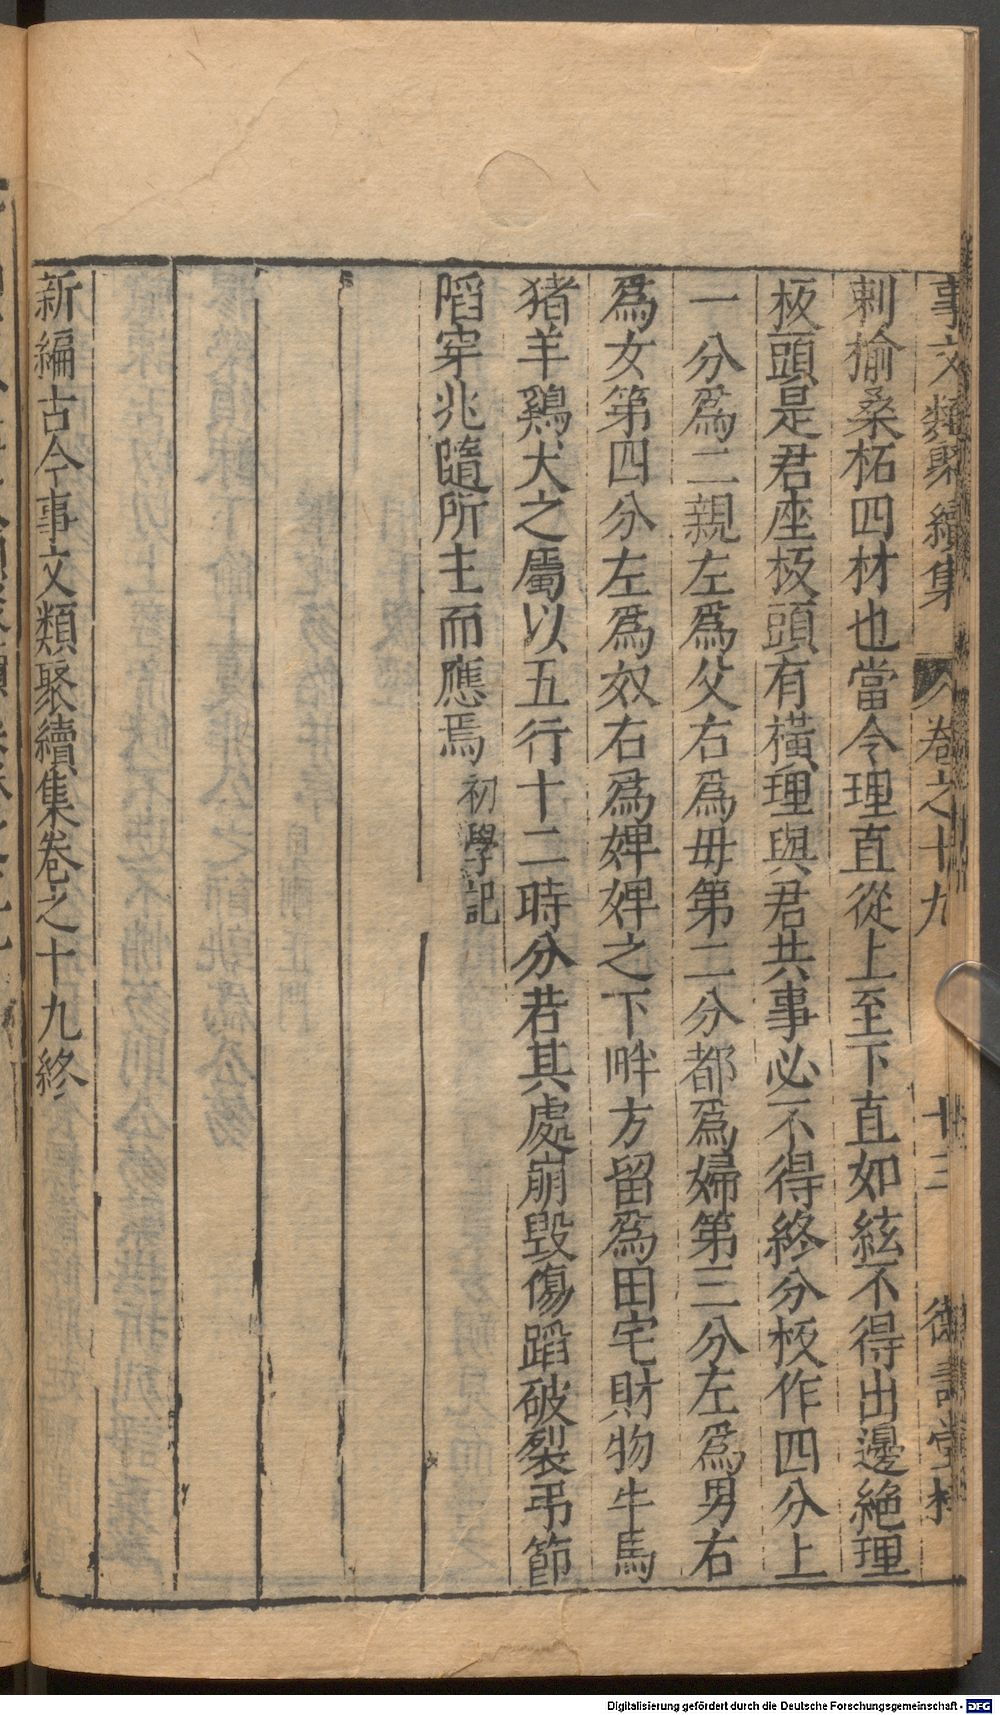 事文類聚續集 卷之十九 廿三 德壽堂梓
刺榆桑柘四材也當令理直從上至下直如絃不得出邊絶理
板頭是君座板頭有橫理與君共事必不得終分板作四分上
一分爲二親左爲父右爲母第二分都爲婦第三分左爲男右
爲女第四分左爲奴右爲婢婢之下畔方留爲田宅財物牛馬
猪羊鷄犬之屬以五行十二時分若其處崩毀傷蹈破裂弔節
㿿穿兆隨所主而應焉 初學記
新編古今事文類聚續集卷之十九終
Digitalisierung gefördert durch die Deutsche Forschungsgemeinschaft - DFG